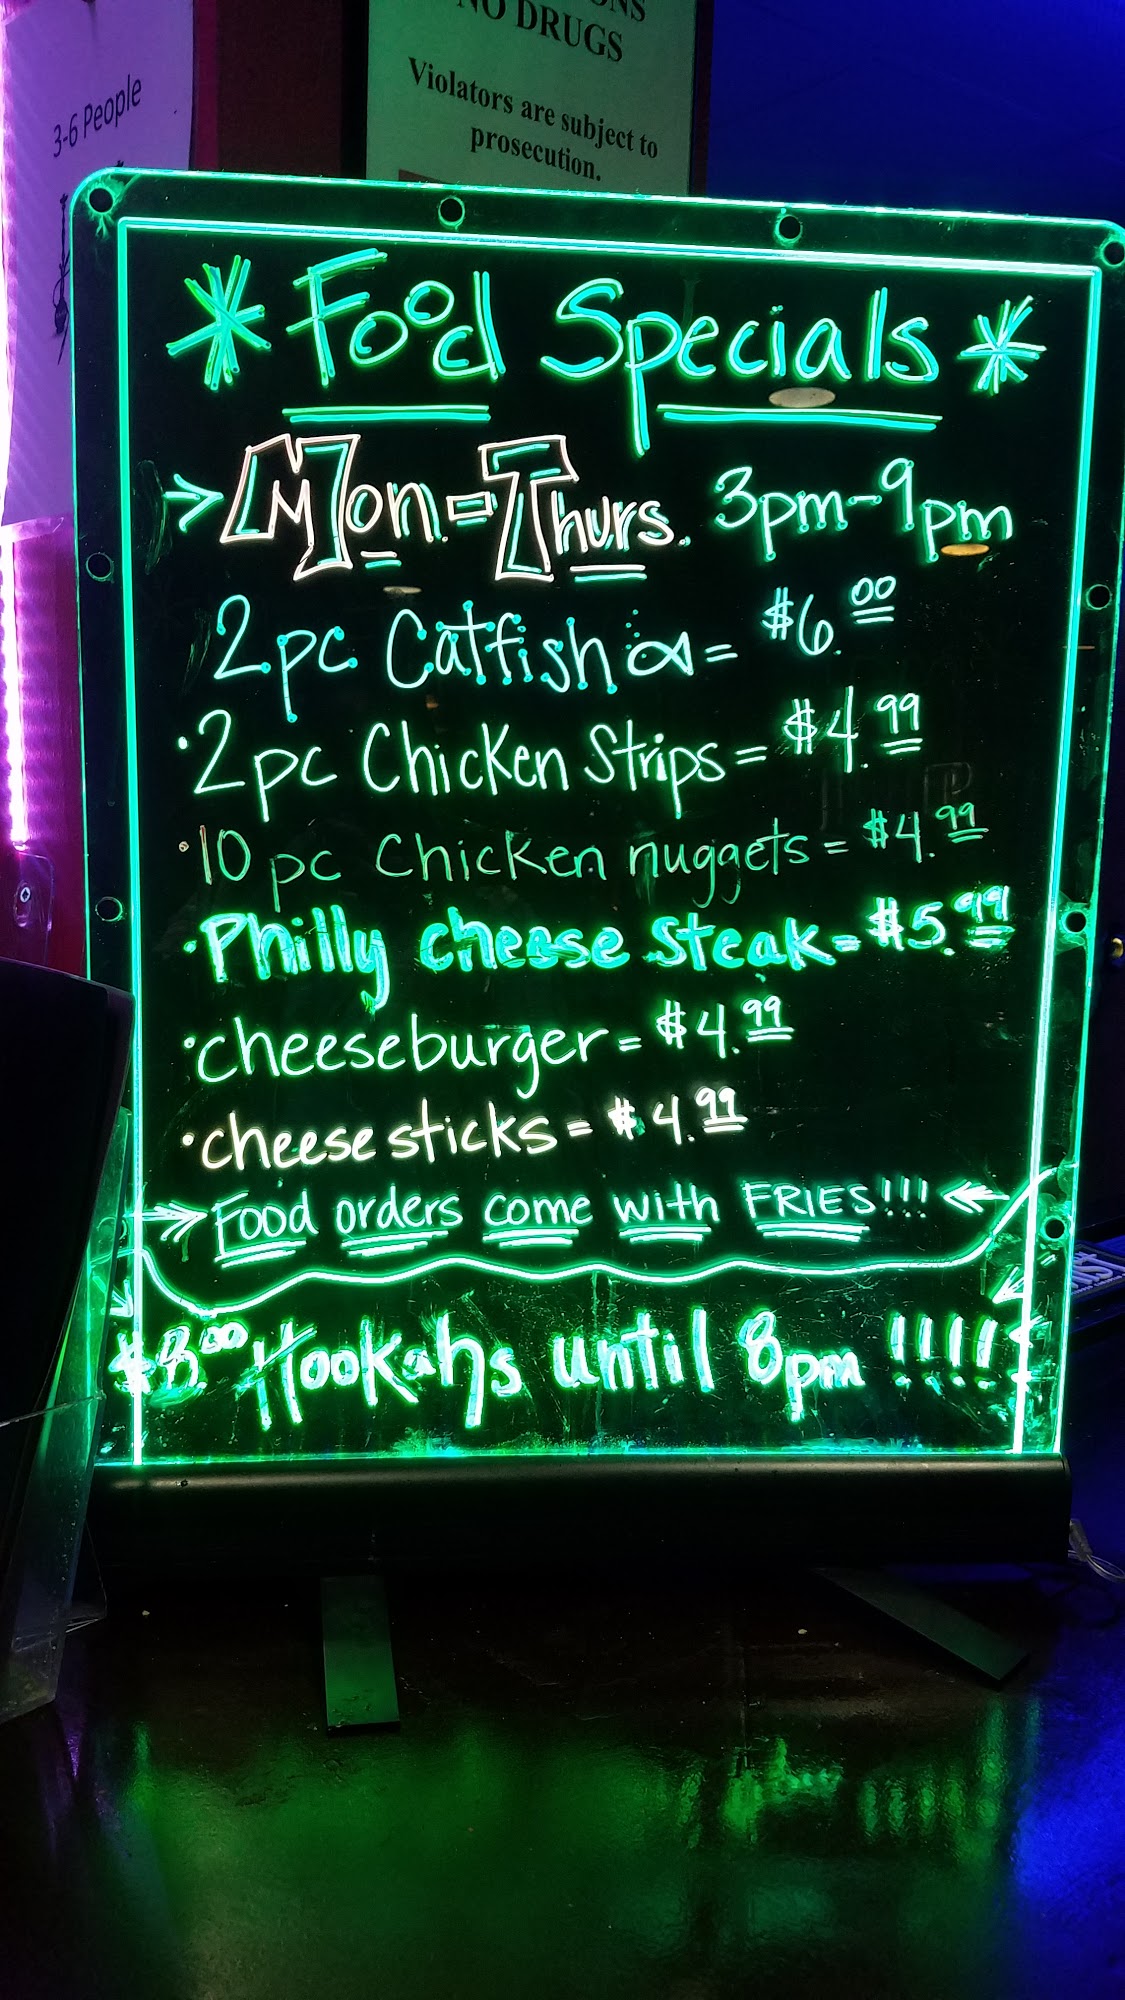 3-6 People
NO DRUGS
Violators are subject to
prosecution.
*Food Specials*
→ Mon.-Thurs. 3pm-9pm
2pc Catfish = $6.00
·2pc Chicken Strips = $4.99
·10 pc Chicken nuggets = $4.99
·Philly cheese Steak = $5.99
·cheeseburger = $4.99
·cheese sticks = $4.99
Food orders come with FRIES!!!
$8.00 Hookahs until 8pm !!!!